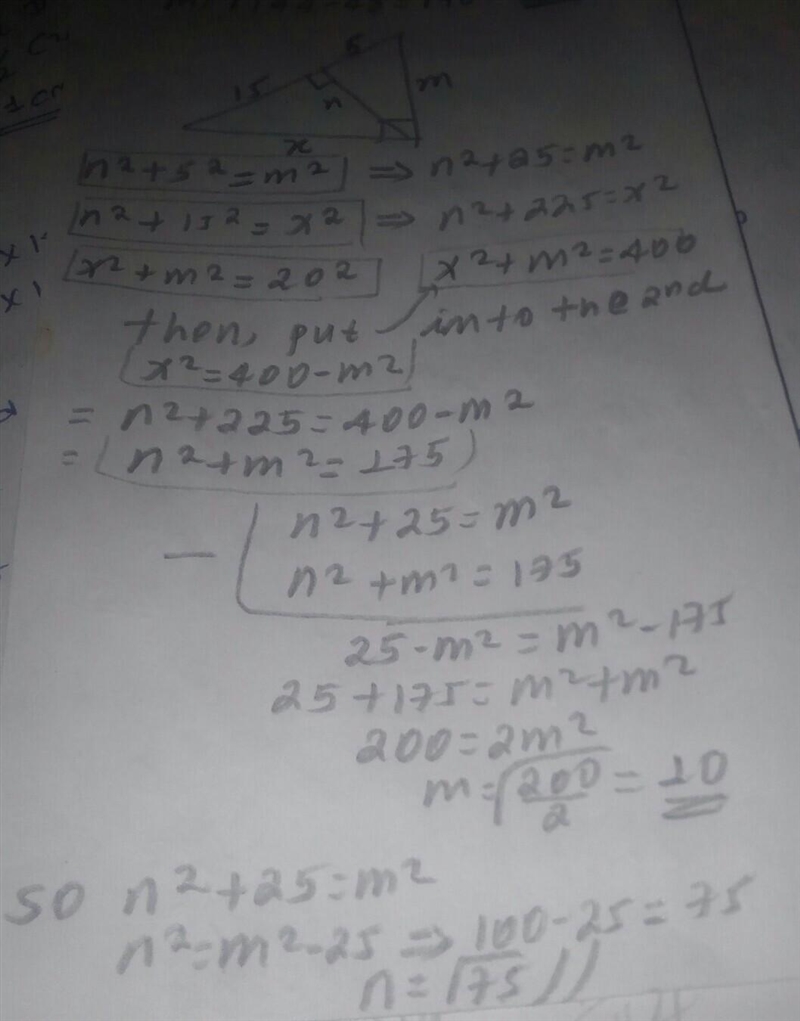 5
15
n
m
x
n²+5²=m² ⇒ n²+25=m²
n²+15²=x² ⇒ n²+225=x²
x²+m²=20² x²+m²=400
then, put into the 2nd
x²=400-m²
= n²+225=400-m²
= (n²+m²=175)
n²+25=m²
- n²+m²=175
25-m²=m²-175
25+175=m²+m²
200=2m²
m=√200/2=10
SO n²+25=m²
n²=m²-25 ⇒ 100-25=75
n=√75//